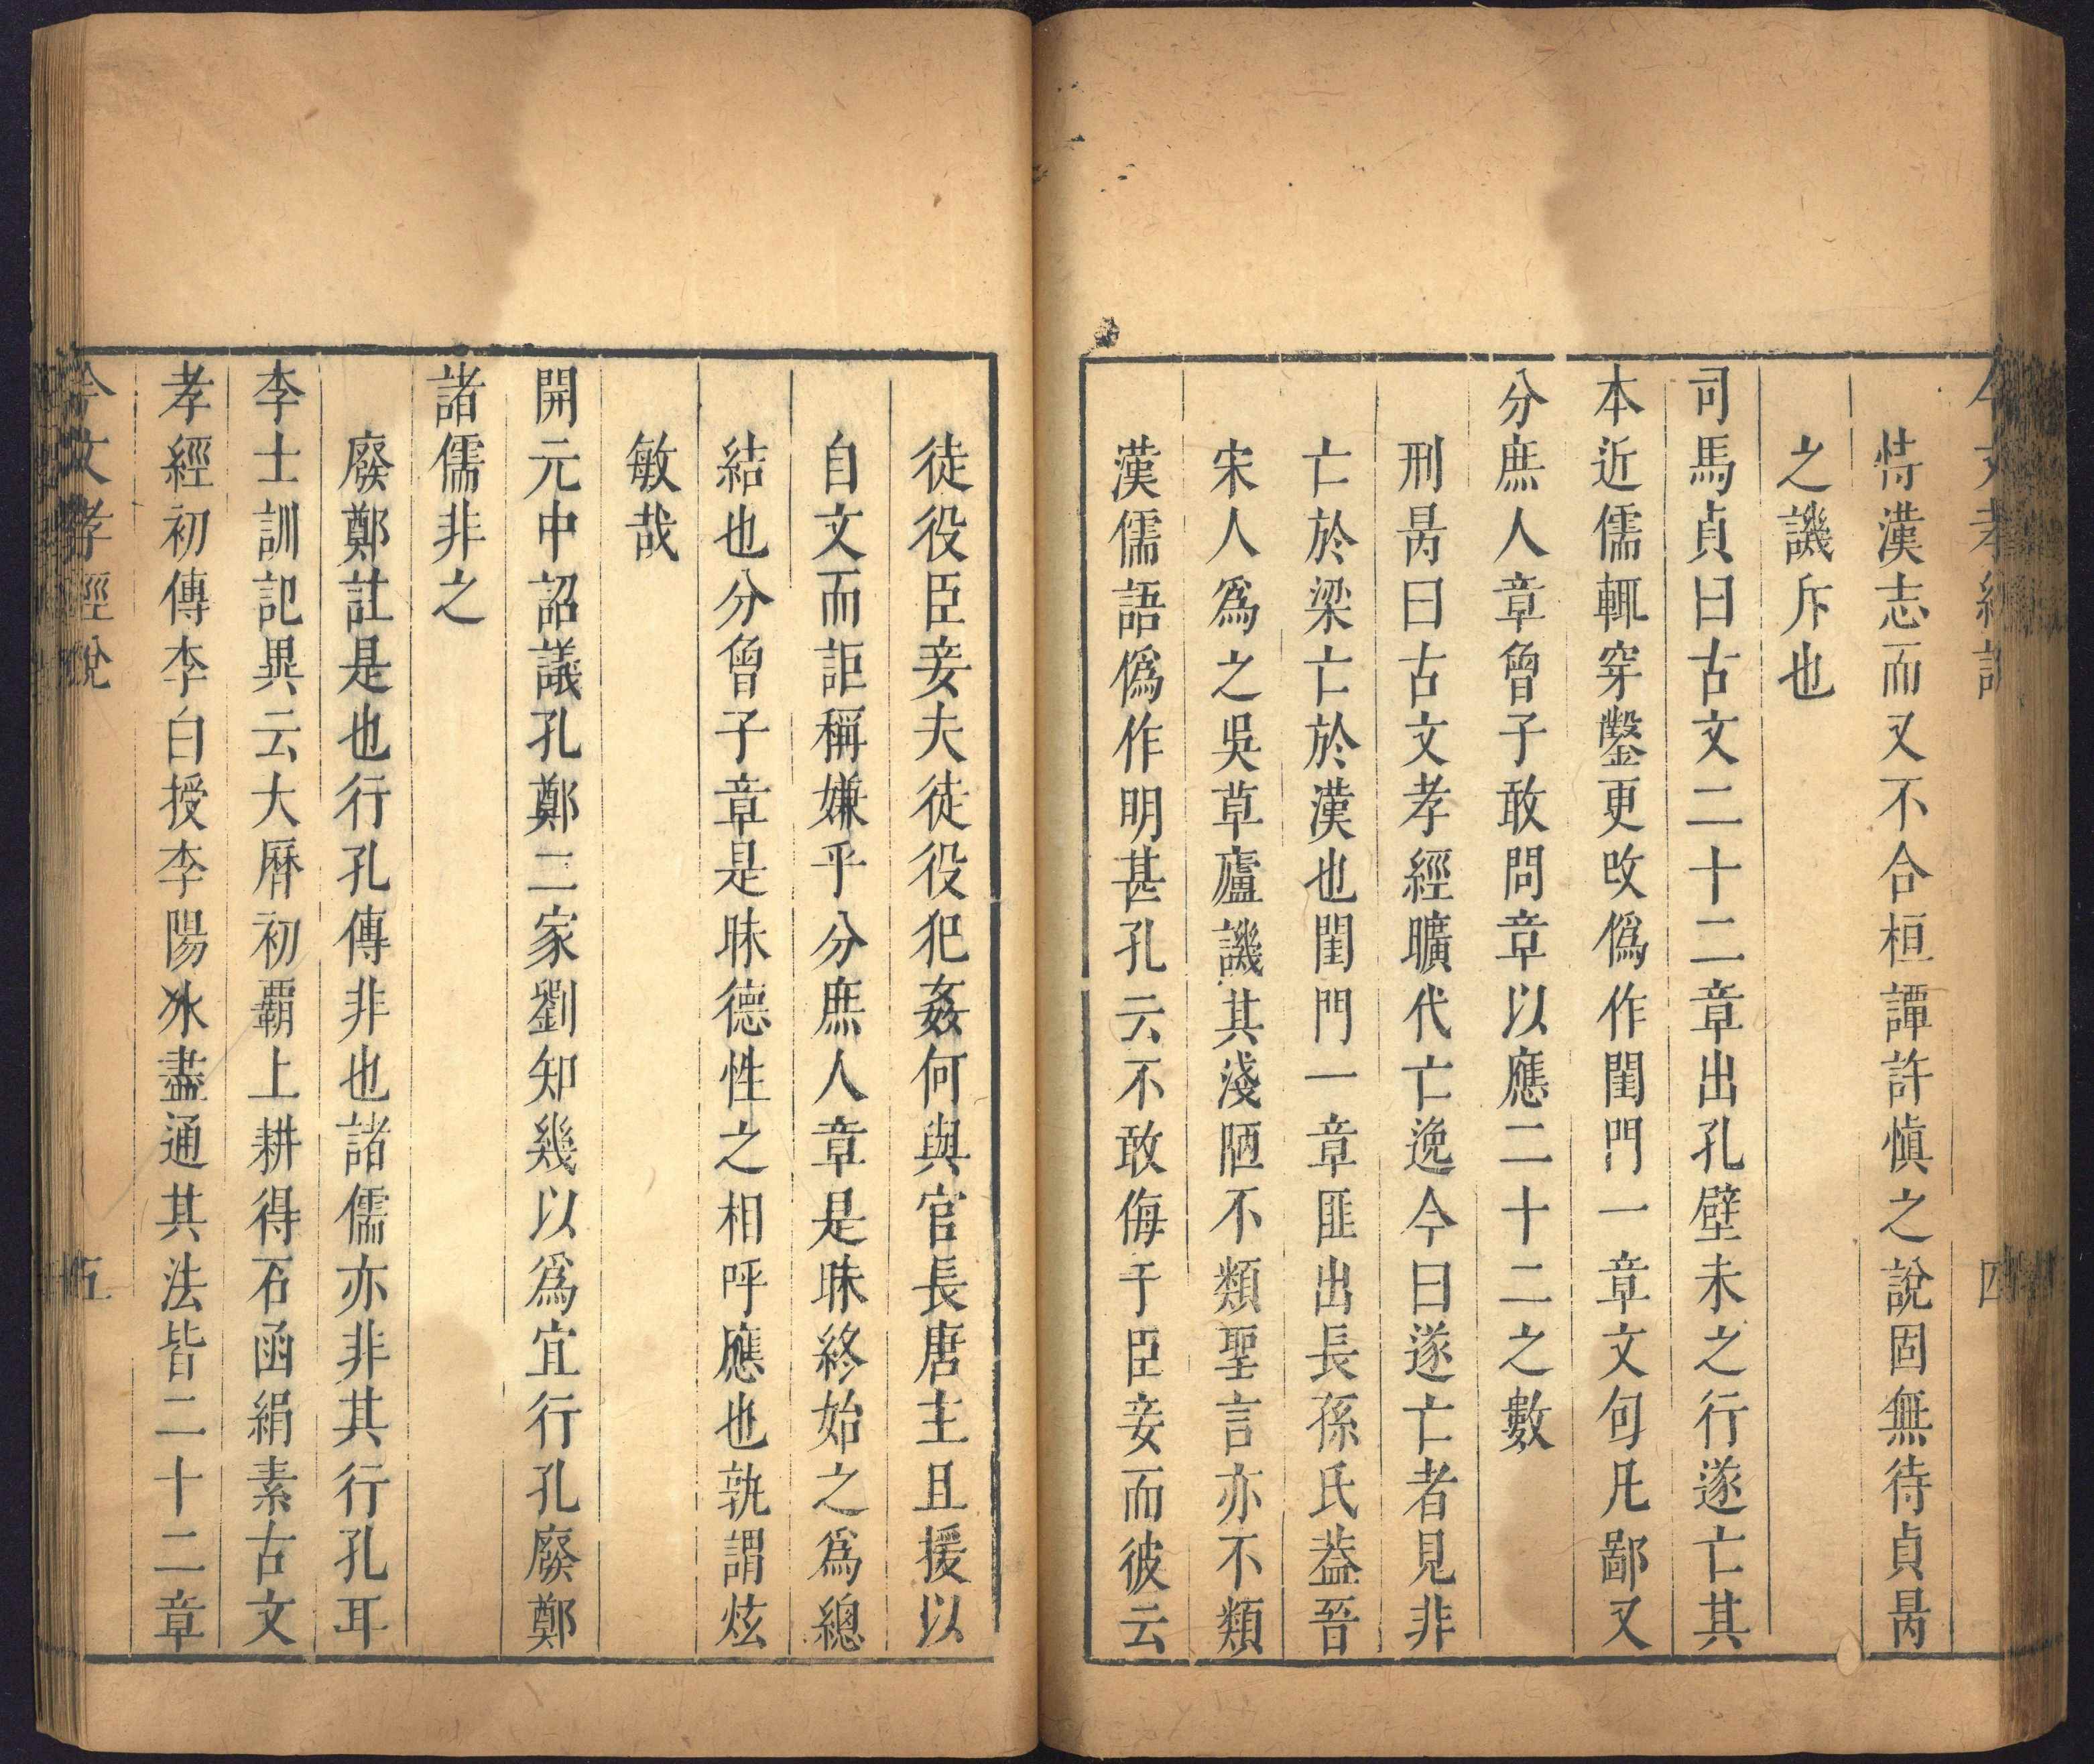 今文孝經說
四
恃漢志而又不合桓譚許慎之說固無待貞昺
之譏斥也
司馬貞曰古文二十二章出孔壁未之行遂亡其
本近儒輒穿鑿更改偽作閨門一章文句凡鄙又
分庶人章曾子敢問章以應二十二之數
刑昺曰古文孝經曠代亡逸今曰遂亡者見非
亡於梁亡於漢也閨門一章匪出長孫氏葢晉
宋人爲之吳草廬譏其淺陋不類聖言亦不類
漢儒語僞作明甚孔云不敢侮于臣妾而彼云
徒役臣妾夫徒役犯姦何與官長唐主且援以
自文而詎稱嫌乎分庶人章是昧終始之爲總
結也分曾子章是昧德性之相呼應也孰謂炫
敏哉
開元中詔議孔鄭二家劉知幾以爲宜行孔廢鄭
諸儒非之
廢鄭註是也行孔傳非也諸儒亦非其行孔耳
李士訓記異云大曆初霸上耕得石函絹素古文
孝經初傳李白授李陽冰盡通其法皆二十二章
今文孝經說
五